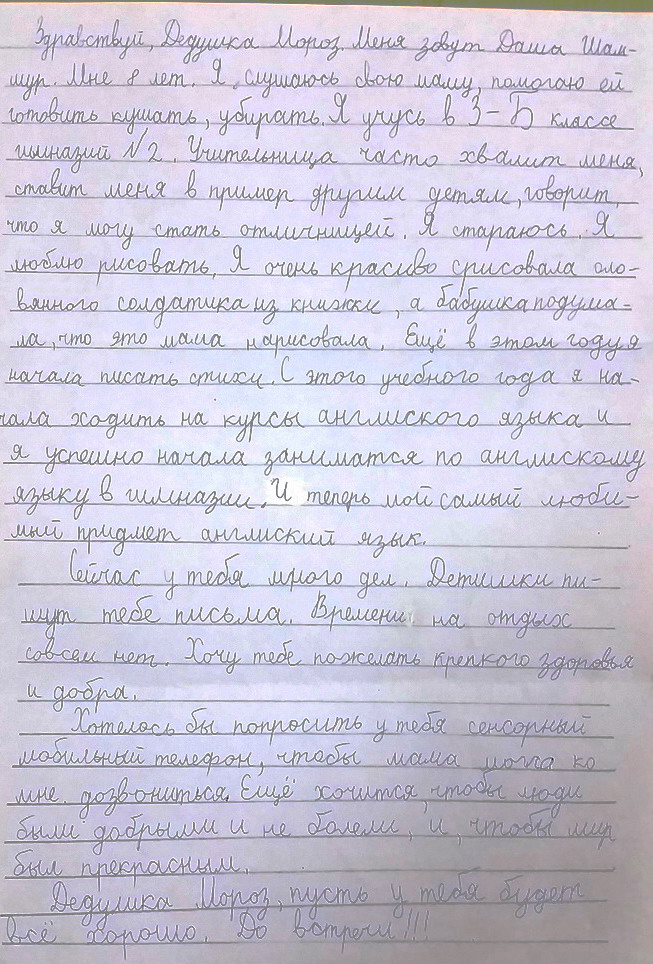 Здравствуй, Дедушка Мороз. Меня зовут Даша Шам-
мур. Мне 8 лет. Я слушаюсь свою маму, помогаю ей
готовить кушать, убирать. Я учусь в 3-Б классе
гимназий №2. Учительница часто хвалит меня,
ставит меня в пример другим детям, говорит,
что я могу стать отличницей. Я стараюсь. Я
люблю рисовать. Я очень красиво срисовала оло-
вянного солдатика из книжки, а бабушка подума-
ла, что это мама нарисовала. Ещё в этом году я
начала писать стихи. С этого учебного года я на-
чала ходить на курсы англиского языка и
я успешно начала заниматся по англискому
языку в гимназии. И теперь мой самый люби-
мый придмет англиский язык.
Сейчас у тебя много дел. Детишки пи-
шут тебе письма. Времени на отдых
совсем нет. Хочу тебе пожелать крепкого здоровья
и добра.
Хотелось бы попросить у тебя сенсорный
мобильный телефон, чтобы мама могла ко
мне дозвониться. Ещё хочится, чтобы люди
были добрыми и не болели, и, чтобы мир
был прекрасным.
Дедушка Мороз, пусть у тебя будет
всё хорошо. До встречи!!!